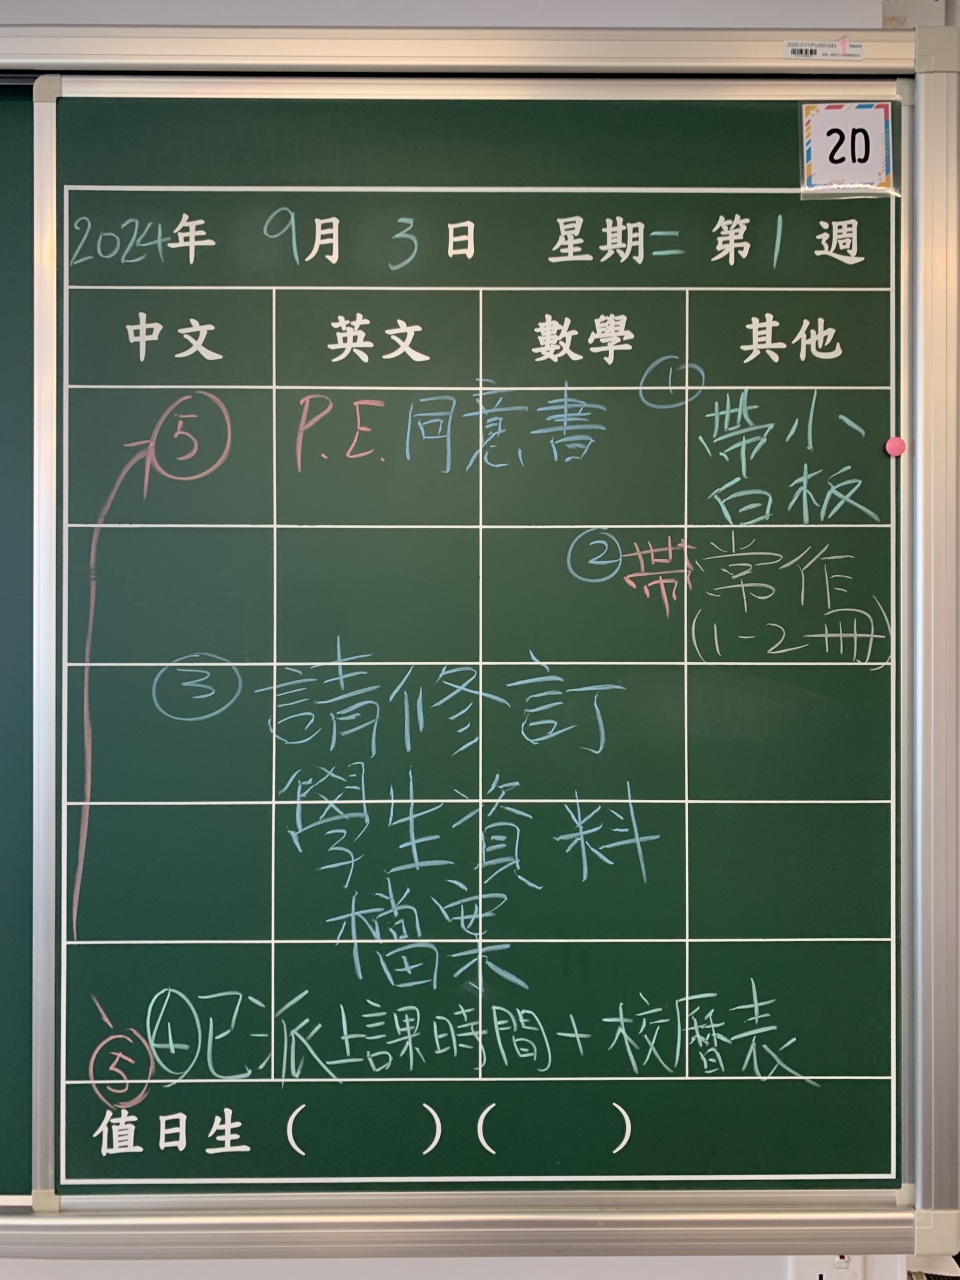 2D
2024年 9月 3日 星期二 第1週
中文 英文 數學 其他
⑤ P.E. 同意書 ① 帶小
白板
② 帶 常作
(1-2冊)
③ 請修訂
學生資料
檔案
④ 已派上課時間+校曆表
⑤
值日生 ( ) ( )